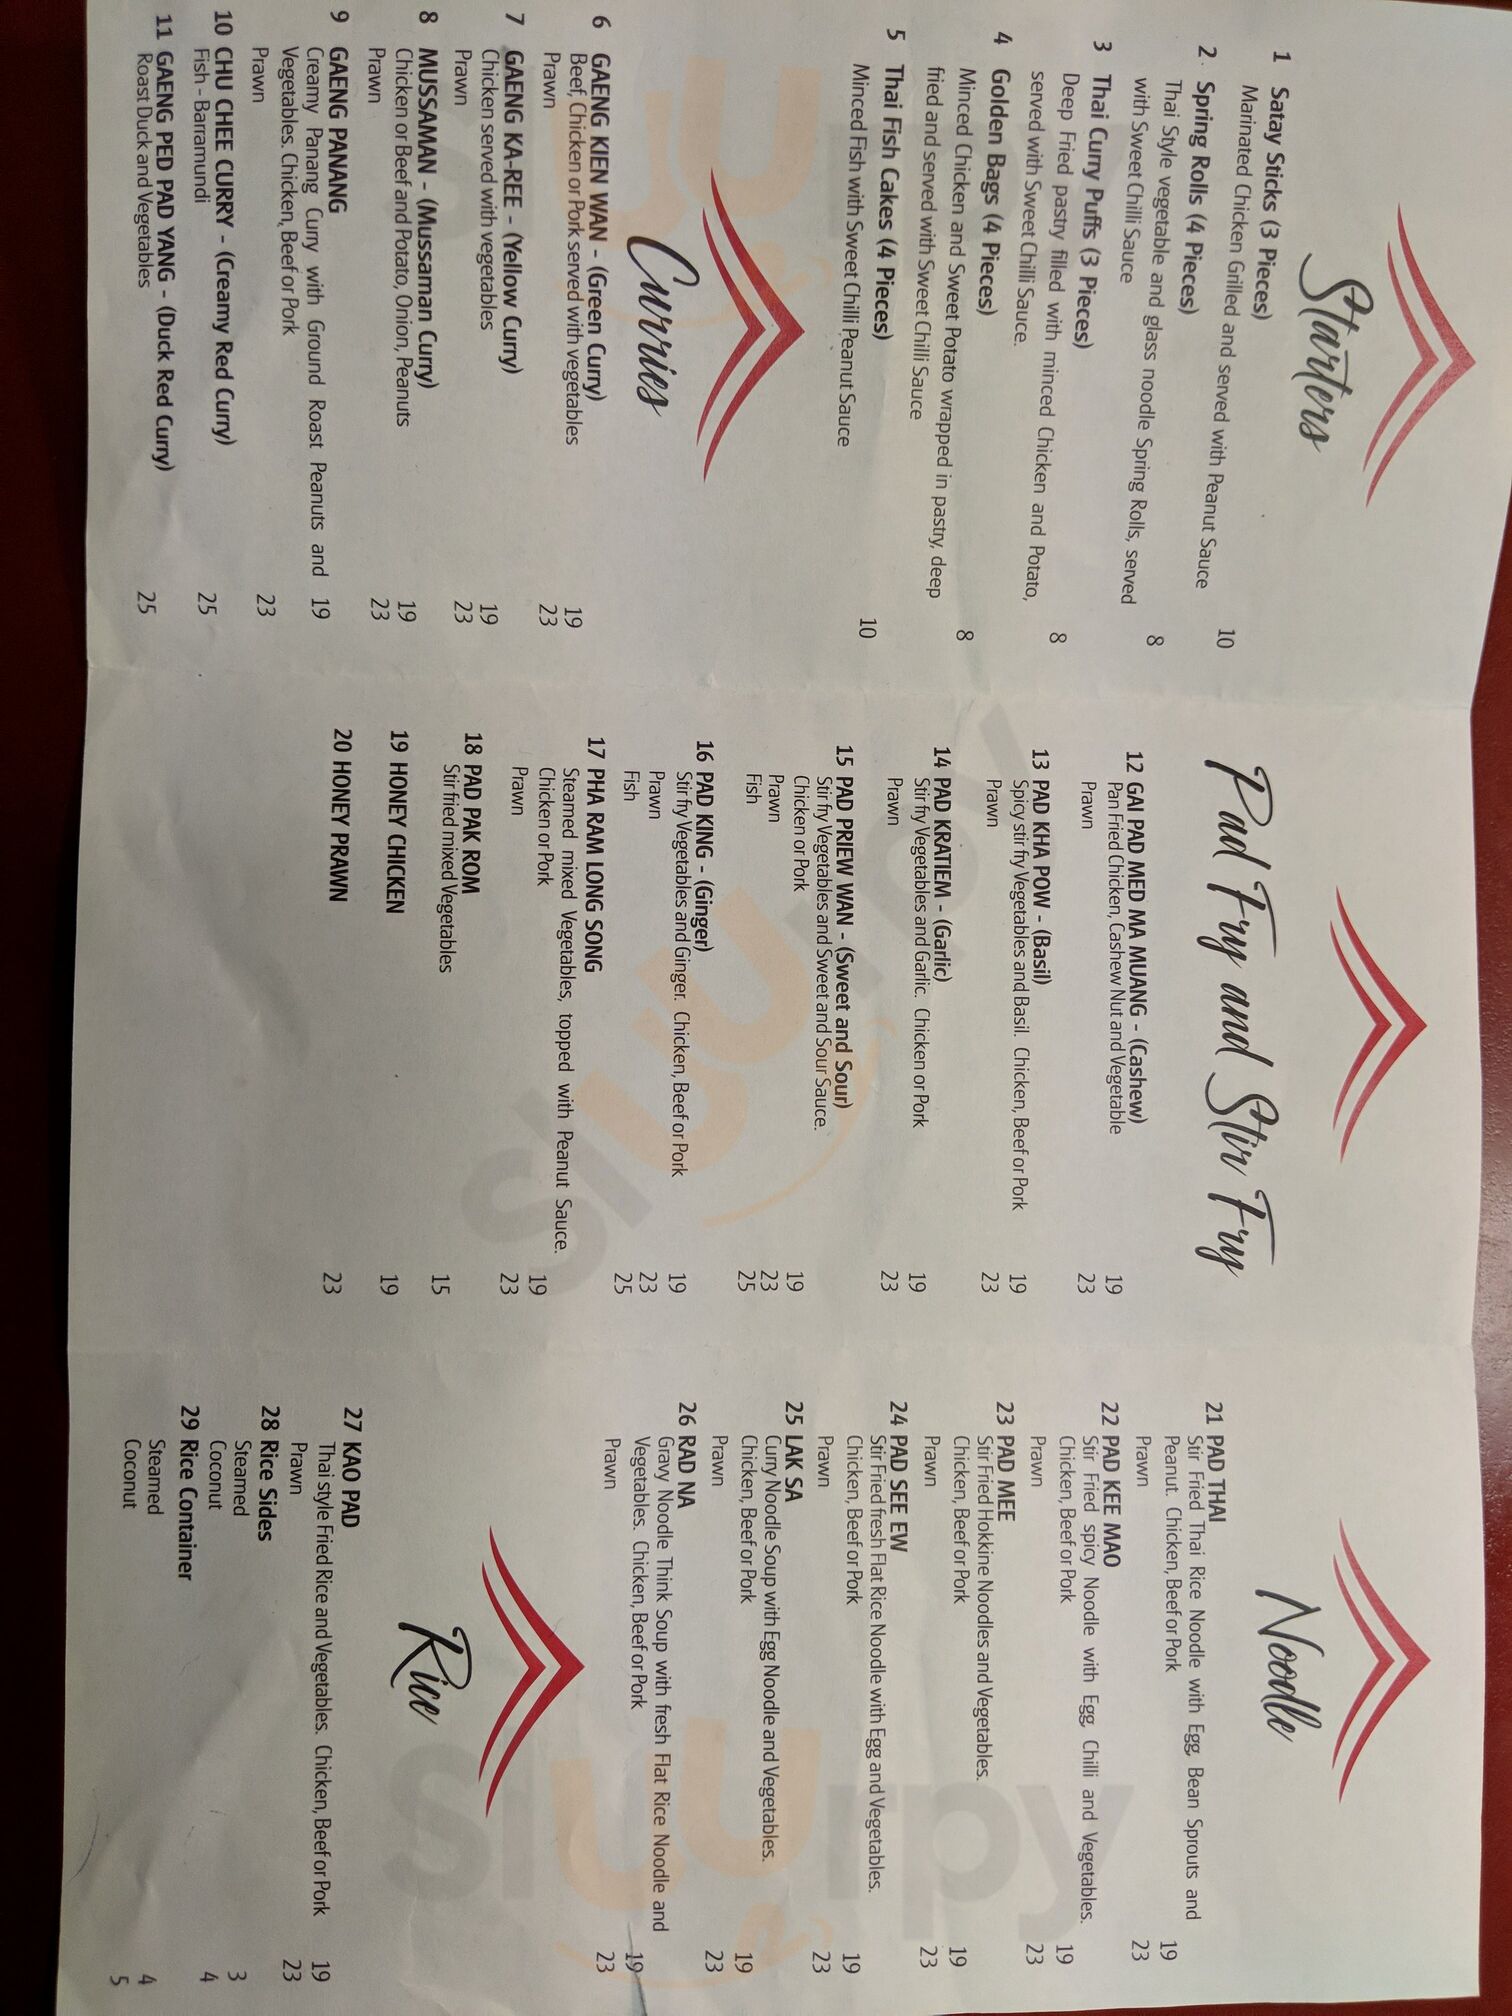 Starters
1 Satay Sticks (3 Pieces)
Marinated Chicken Grilled and served with Peanut Sauce 10
2 Spring Rolls (4 Pieces)
Thai Style vegetable and glass noodle Spring Rolls, served
with Sweet Chilli Sauce 8
3 Thai Curry Puffs (3 Pieces)
Deep Fried pastry filled with minced Chicken and Potato,
served with Sweet Chilli Sauce. 8
4 Golden Bags (4 Pieces)
Minced Chicken and Sweet Potato wrapped in pastry, deep
fried and served with Sweet Chilli Sauce 8
5 Thai Fish Cakes (4 Pieces)
Minced Fish with Sweet Chilli Peanut Sauce 10
Curries
6 GAENG KIEN WAN - (Green Curry)
Beef, Chicken or Pork served with vegetables 19
Prawn 23
7 GAENG KA-REE - (Yellow Curry)
Chicken served with vegetables 19
Prawn 23
8 MUSSAMAN - (Mussaman Curry)
Chicken or Beef and Potato, Onion, Peanuts 19
Prawn 23
9 GAENG PANANG
Creamy Panang Curry with Ground Roast Peanuts and 19
Vegetables. Chicken, Beef or Pork
Prawn 23
10 CHU CHEE CURRY - (Creamy Red Curry)
Fish - Barramundi 25
11 GAENG PED PAD YANG - (Duck Red Curry)
Roast Duck and Vegetables 25
Pad Fry and Stir Fry
12 GAI PAD MED MA MUANG - (Cashew)
Pan Fried Chicken, Cashew Nut and Vegetable 19
Prawn 23
13 PAD KHA POW - (Basil)
Spicy stir fry Vegetables and Basil. Chicken, Beef or Pork 19
Prawn 23
14 PAD KRATIEM - (Garlic)
Stir fry Vegetables and Garlic. Chicken or Pork 19
Prawn 23
15 PAD PRIEW WAN - (Sweet and Sour)
Stir fry Vegetables and Sweet and Sour Sauce.
Chicken or Pork 19
Prawn 23
Fish 25
16 PAD KING - (Ginger)
Stir fry Vegetables and Ginger. Chicken, Beef or Pork 19
Prawn 23
Fish 25
17 PHA RAM LONG SONG
Steamed mixed Vegetables, topped with Peanut Sauce.
Chicken or Pork 19
Prawn 23
18 PAD PAK ROM
Stir fried mixed Vegetables 15
19 HONEY CHICKEN 19
20 HONEY PRAWN 23
Noodle
21 PAD THAI
Stir Fried Thai Rice Noodle with Egg, Bean Sprouts and
Peanut. Chicken, Beef or Pork 19
Prawn 23
22 PAD KEE MAO
Stir Fried spicy Noodle with Egg, Chilli and Vegetables.
Chicken, Beef or Pork 19
Prawn 23
23 PAD MEE
Stir Fried Hokkine Noodles and Vegetables.
Chicken, Beef or Pork 19
Prawn 23
24 PAD SEE EW
Stir Fried fresh Flat Rice Noodle with Egg and Vegetables.
Chicken, Beef or Pork 19
Prawn 23
25 LAK SA
Curry Noodle Soup with Egg Noodle and Vegetables.
Chicken, Beef or Pork 19
Prawn 23
26 RAD NA
Gravy Noodle Think Soup with fresh Flat Rice Noodle and
Vegetables. Chicken, Beef or Pork 19
Prawn 23
Rice
27 KAO PAD
Thai style Fried Rice and Vegetables. Chicken, Beef or Pork 19
Prawn 23
28 Rice Sides
Steamed 3
Coconut 4
29 Rice Container
Steamed 4
Coconut 5
slurpy
slurpy